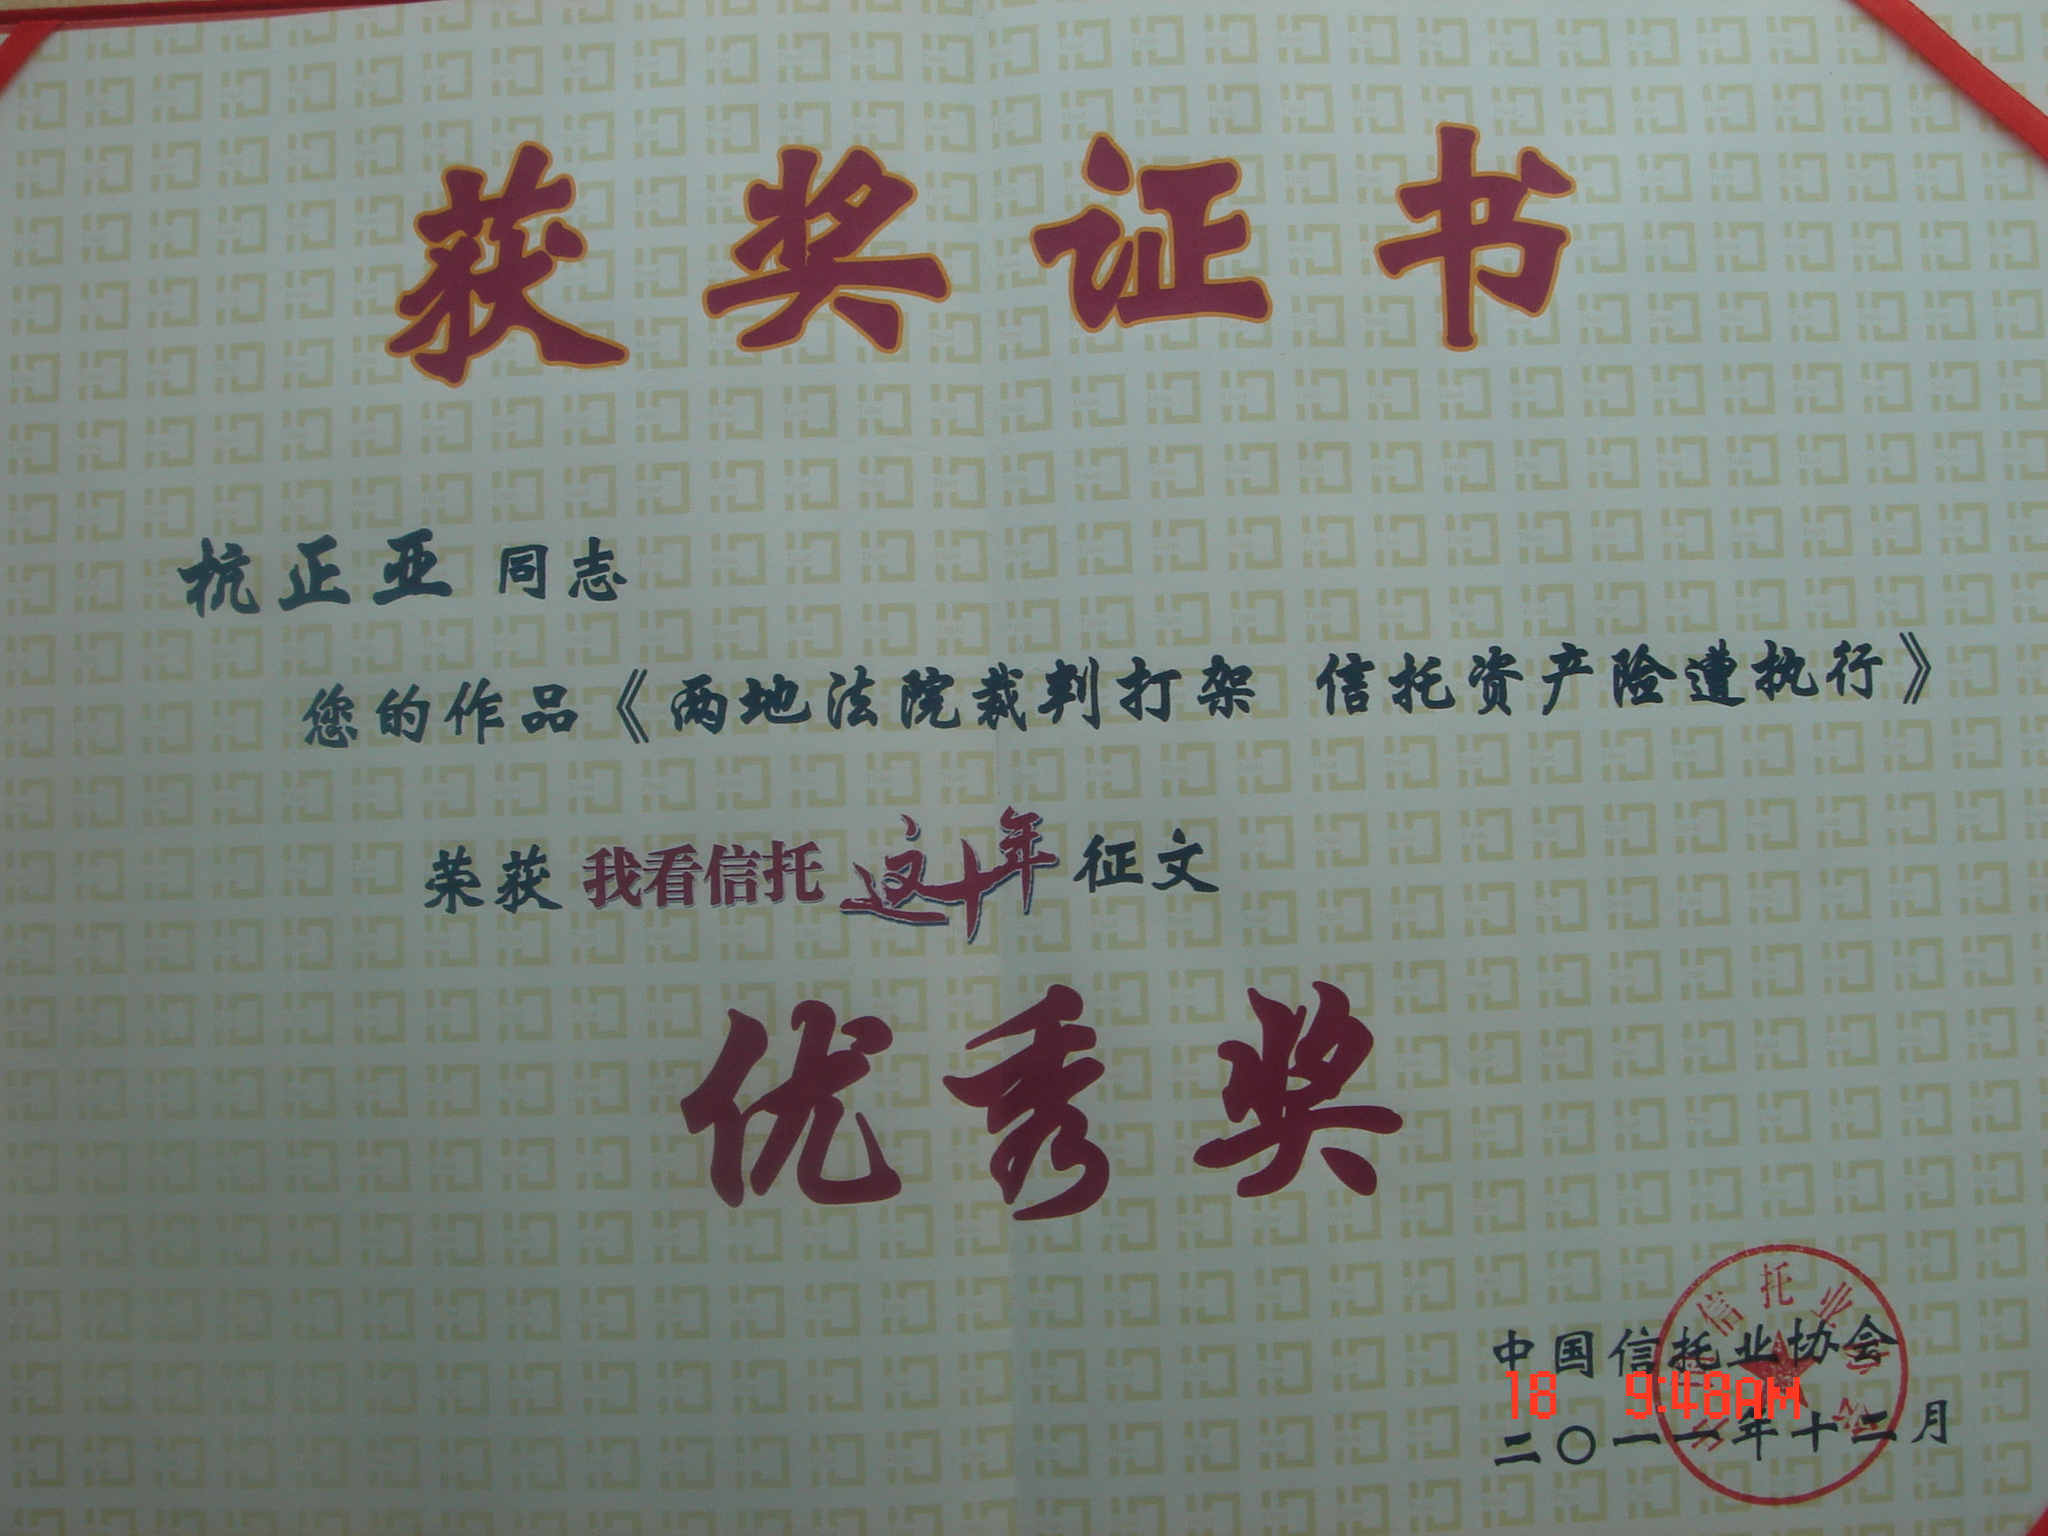 获奖证书
杭正亚 同志
您的作品《两地法院裁判打架 信托资产险遭执行》
荣获 我看信托 这十年 征文
优秀奖
中国信托业协会
18 9:48AM
二〇一一年十二月